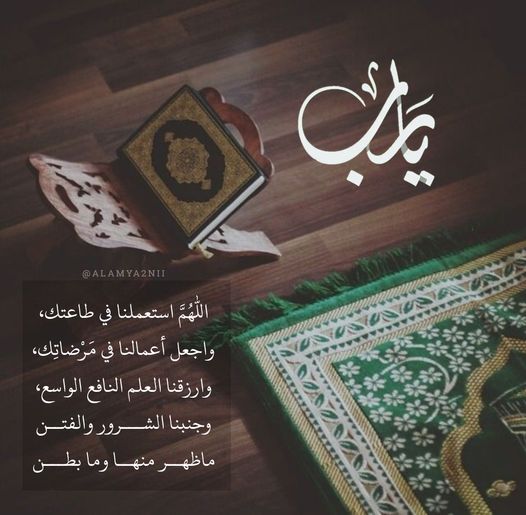 يَارب
@ALAMYA2NII
اللَّهُمَّ استعملنا في طاعتك،
واجعل أعمالنا في مَرْضاتِك،
وارزقنا العلم النافع الواسع،
وجنبنا الشـــرور والفتـــن
ماظهـــر منهـــا وما بطـــن